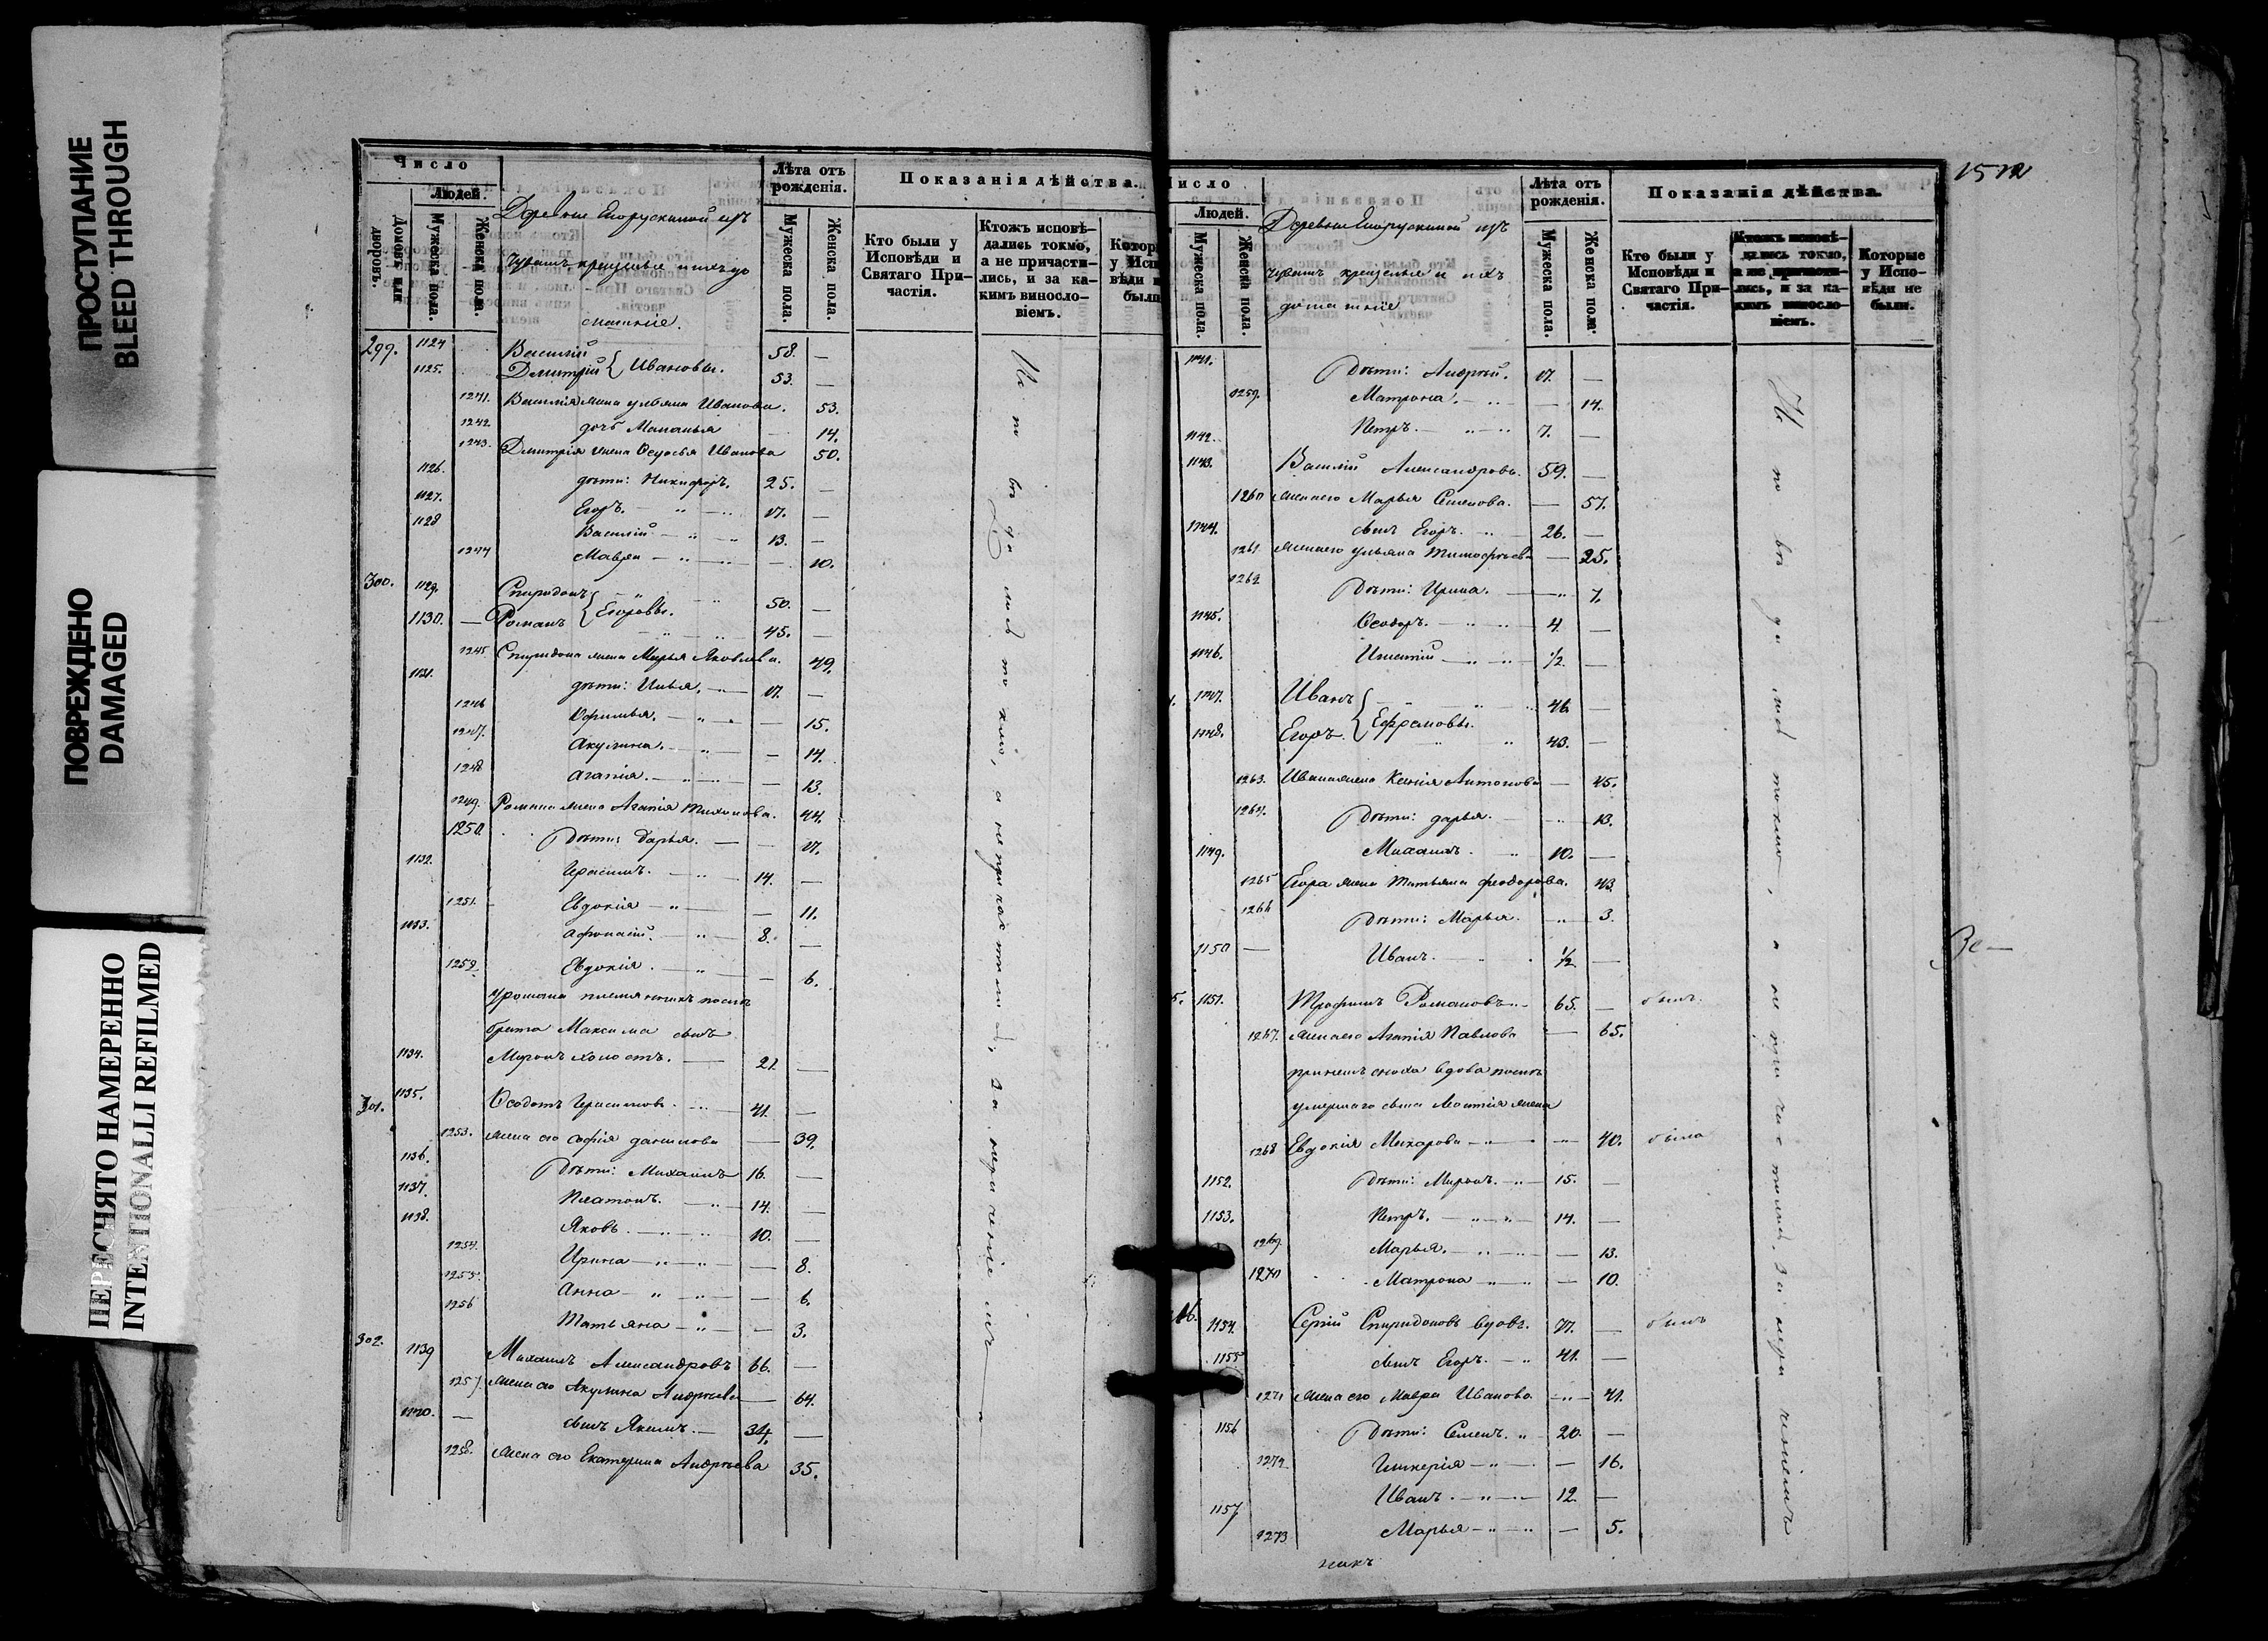 ПРОСТУПАНИЕ
BLEED THROUGH
ПОВРЕЖДЕНО
DAMAGED
ПЕРЕСНЯТО НАМЕРЕННО
INTENTIONALLI REFILMED
Число
Людей.
Домовъ или дворовъ.
Мужеска пола.
Женска пола.
Деревни Егорускиной изъ
Чувашъ крещеные и ихъ до
машніе.
Лѣта отъ рожденія.
Мужеска пола.
Женска пола.
Показанія дѣйства.
Кто были у Исповѣди и Святаго При-частія.
Ктожъ исповѣ-дались токмо, а не причасти-лись, и за ка-кимъ винослο-віемъ.
299. 1124 Василій
1125. Дмитрій } Ивановы. 58. —
53. —
1241. Василія жена Ульяна Иванова. 53.
1242. дочь Маланья — 14.
1243. Дмитрія жена Ѳедосья Иванова 50.
1126. дѣти: Никифоръ. 25. —
1127. Егоръ. — 17. —
1128 Василій — 13. —
1244 Мавра — — 10.
300. 1129. Спиридонъ
1130. — Романъ } Егоровы. 50. —
45. —
1245 Спиридона жена Марья Яковлева. 49.
1131. дѣти: Илья. — 17. —
1246 Офимья. — — 15.
1247. Акулина. — — 14.
1248 Агапія. — — 13.
1249. Романа жена Агапія Тихонова. 44.
1250. Дѣти: Дарья. — — 17.
1132. Герасимъ. — 14. —
1251. Евдокія — — 11.
1133. Афонасій. — 8. —
1252. Евдокія. — — 6.
У Романа племянникъ послѣ
брата Максима сынъ
1134. Миронъ холостъ. — 21. —
301. 1135. Ѳедотъ Герасимовъ. 41. —
1253. жена его Софія Данилова — 39.
1136. Дѣти: Михаилъ 16. —
1137. Платонъ. — 14. —
1138. Яковъ. — 10. —
1254. Ирина — — 8.
1255. Анна — — 6.
1256 Татьяна — — 3.
302. 1139 Михаилъ Александровъ 66. —
1257. жена его Акулина Андреева — 64.
1140. — сынъ Якимъ. — 34. —
1258. жена его Екатерина Андреева 35.
Число
Людей.
Мужеска пола.
Женска пола.
Деревни Егорускиной изъ
чувашъ крещеные и ихъ
домашніе
Лѣта отъ рожденія.
Мужеска пола.
Женска пола.
Показанія дѣйства.
Кто были у Исповѣди и Святаго При-частія.
Ктожъ исповѣ-дались токмо, а не причасти-лись, и за ка-кимъ винослο-віемъ.
Которые у Испо-вѣди не были.
1141. Дѣти: Андрей. 17. —
1259. Матрона. — — 14.
1142. Петръ. — 7. —
1143. Василій Александровъ. 59. —
1260 жена его Марья Семенова. — 57.
1144. сынъ Егоръ. 26. —
1261. жена его Ульяна Тимофеева — 25.
1262 Дѣти: Ирина. — 7.
1145. Ѳеодоръ. — 4. —
1146. Игнатій — 1/2 —
1147. Иванъ
1148. Егоръ } Ефремовы. 46. —
43. —
1263. Ивана жена Ксенія Антонова — 45.
1264. Дѣти: Дарья. — 13.
1149. Михаилъ. 10. —
1265 Егора жена Татьяна Феодорова. 43.
1266 Дѣти: Марья. — 3.
1150 — Иванъ. 1/2 —
1151. Трофимъ Романовъ 65. — былъ
1267. жена его Агапія Павлова — 65.
при немъ сноха вдова послѣ
умершаго сына жена
1268 Евдокія — 40. была
1152. Дѣти: Миронъ. — 15. —
1153. Петръ. — 14. —
1269 Марья. — — 13.
1270 Матрона — — 10.
1154. Сергій Спиридоновъ вдовъ. 77. — былъ
1155 сынъ Егоръ. — 41. —
1271 жена его Мавра Иванова — 41.
1156 Дѣти: Семенъ. 20. —
1272 Гликерія — — 16.
1157 Иванъ. — 12. —
1273 Марья — — 5.